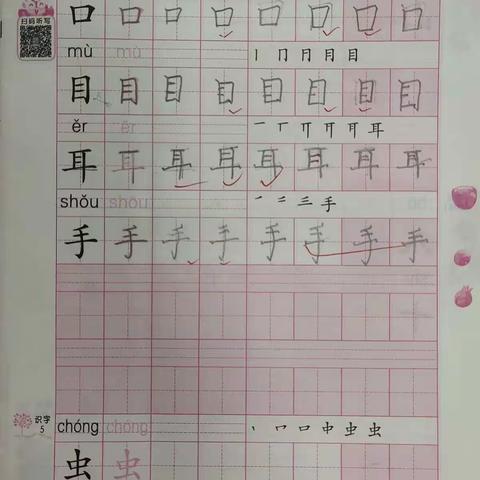 扫码听写
口 口 口 口 口 口 口 口
mù mù 丨 冂 冃 月 目
目 目 目 目 目 目 目 目
ěr ěr 一 丅 丌 耳
耳 耳 耳 耳 耳 耳 耳 耳
shǒu shǒu 一 二 三 手
手 手 手 手 手 手 手 手
识字
5
chóng chóng 丶 口 口 中 虫 虫
虫 虫